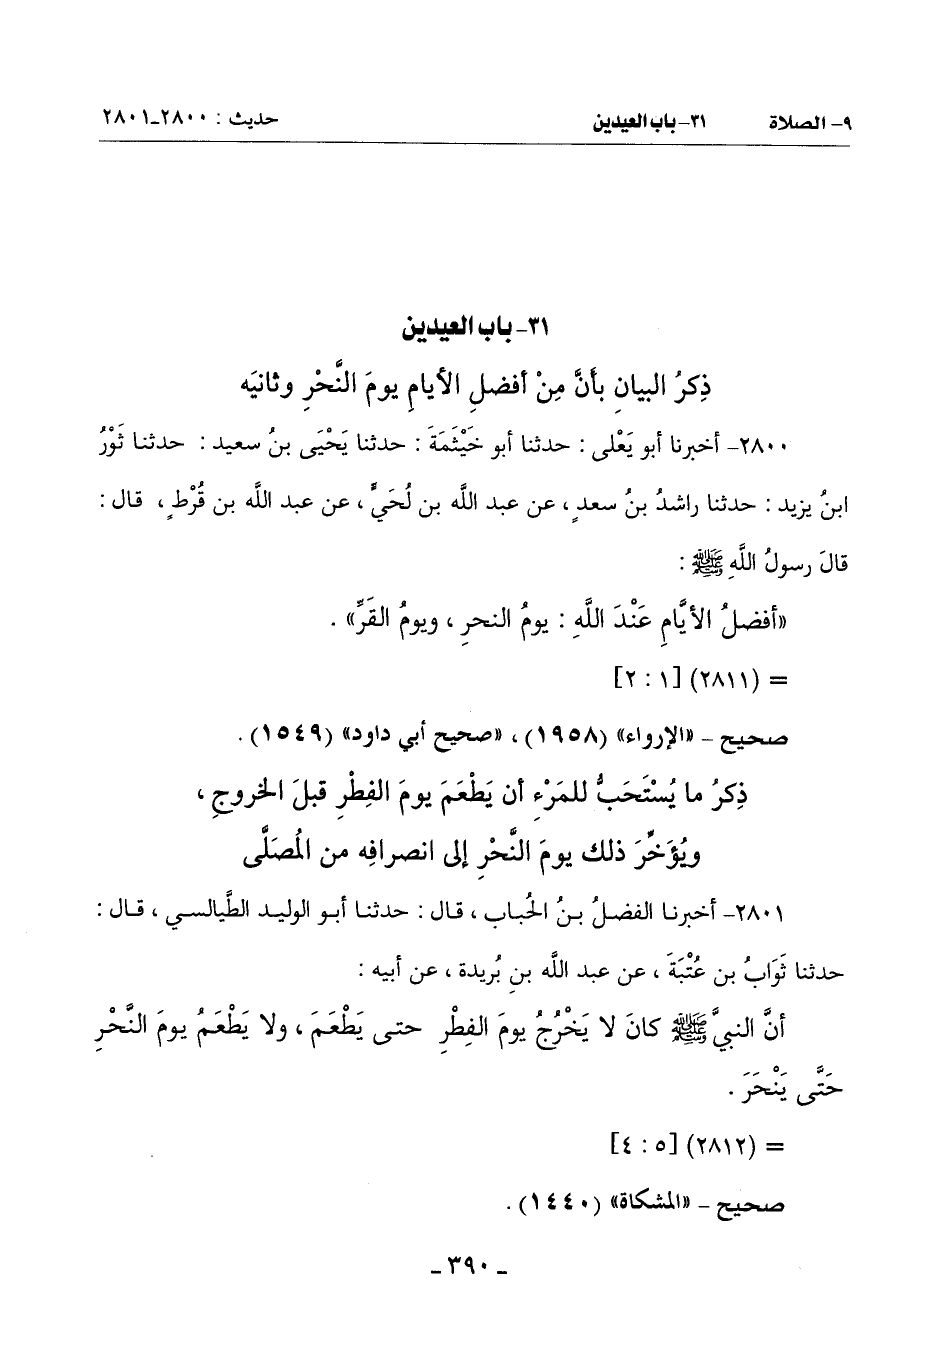 ٩- الصلاة ٣١- باب العيدين حديث : ٢٨٠٠-٢٨٠١
٣١- باب العيدين
ذِكرُ البيانِ بأنَّ مِنْ أفضلِ الأيامِ يومَ النَّحْرِ وثانيَه
٢٨٠٠- أخبرنا أبو يَعْلى : حدثنا أبو خَيْثَمَةَ : حدثنا يَحْيَى بنُ سعيد : حدثنا ثَوْرُ
ابنُ يزيد : حدثنا راشدُ بنُ سعدٍ ، عن عبد اللَّه بن لُحَيٍّ ، عن عبد اللَّه بن قُرْطٍ ، قال :
قالَ رسولُ اللَّهِ ﷺ :
«أفضلُ الأيَّامِ عَنْدَ اللَّهِ : يومُ النحرِ ، ويومُ القَرِّ» .
= (٢٨١١) [١ : ٢]
صحيح - «الإرواء» (١٩٥٨) ، «صحيح أبي داود» (١٥٤٩) .
ذِكرُ ما يُسْتَحَبُّ للمَرْءِ أن يَطْعَمَ يومَ الفِطْرِ قبلَ الخروجِ ،
ويُؤَخِّرَ ذلك يومَ النَّحْرِ إلى انصرافِه من المُصَلَّى
٢٨٠١- أخبرنا الفضلُ بنُ الحُباب ، قال : حدثنا أبو الوليد الطَّيالسي ، قال :
حدثنا ثَوَابُ بن عُتْبَةَ ، عن عبد اللَّه بنِ بُريدة ، عن أبيه :
أنَّ النبيَّ ﷺ كانَ لا يَخْرُجُ يومَ الفِطْرِ حتى يَطْعَمَ ، ولا يَطْعَمُ يومَ النَّحْرِ
حَتَّى يَنْحَرَ .
= (٢٨١٢) [٥ : ٤]
صحيح - «المشكاة» (١٤٤٠) .
- ٣٩٠ -